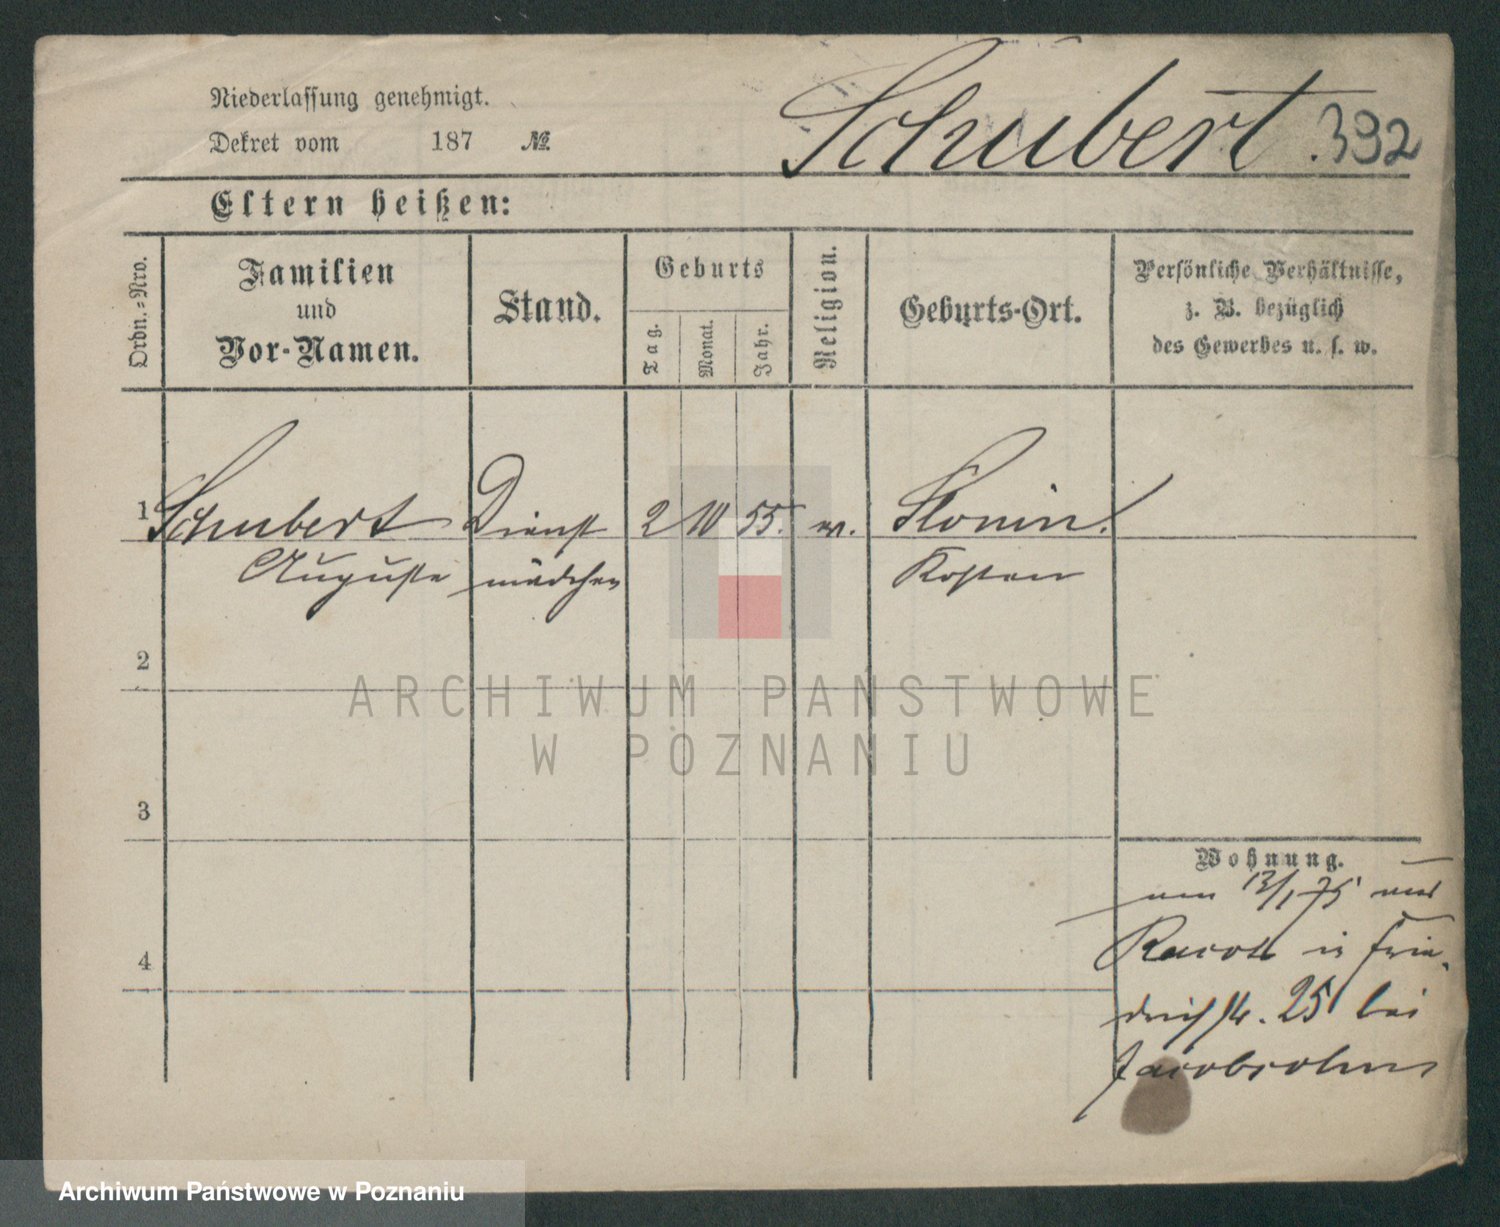 Niederlassung genehmigt.
Dekret vom 187 №
Schubert. 392
Eltern heißen:
Ordn.-Nro.
Familien
und
Vor-Namen.
Stand.
Geburts
Tag.
Monat.
Jahr.
Religion.
Geburts-Ort.
Persönliche Verhältnisse,
z. B. bezüglich
des Gewerbes u. s. w.
1 Schubert Dienst 2 10 55.
Auguste mädchen Kosten
2
3
4
Wohnung.
13/1 75
in Frie-
drichstr. 25 bei
Jacobsohn
ARCHIWUM PAŃSTWOWE
W POZNANIU
Archiwum Państwowe w Poznaniu